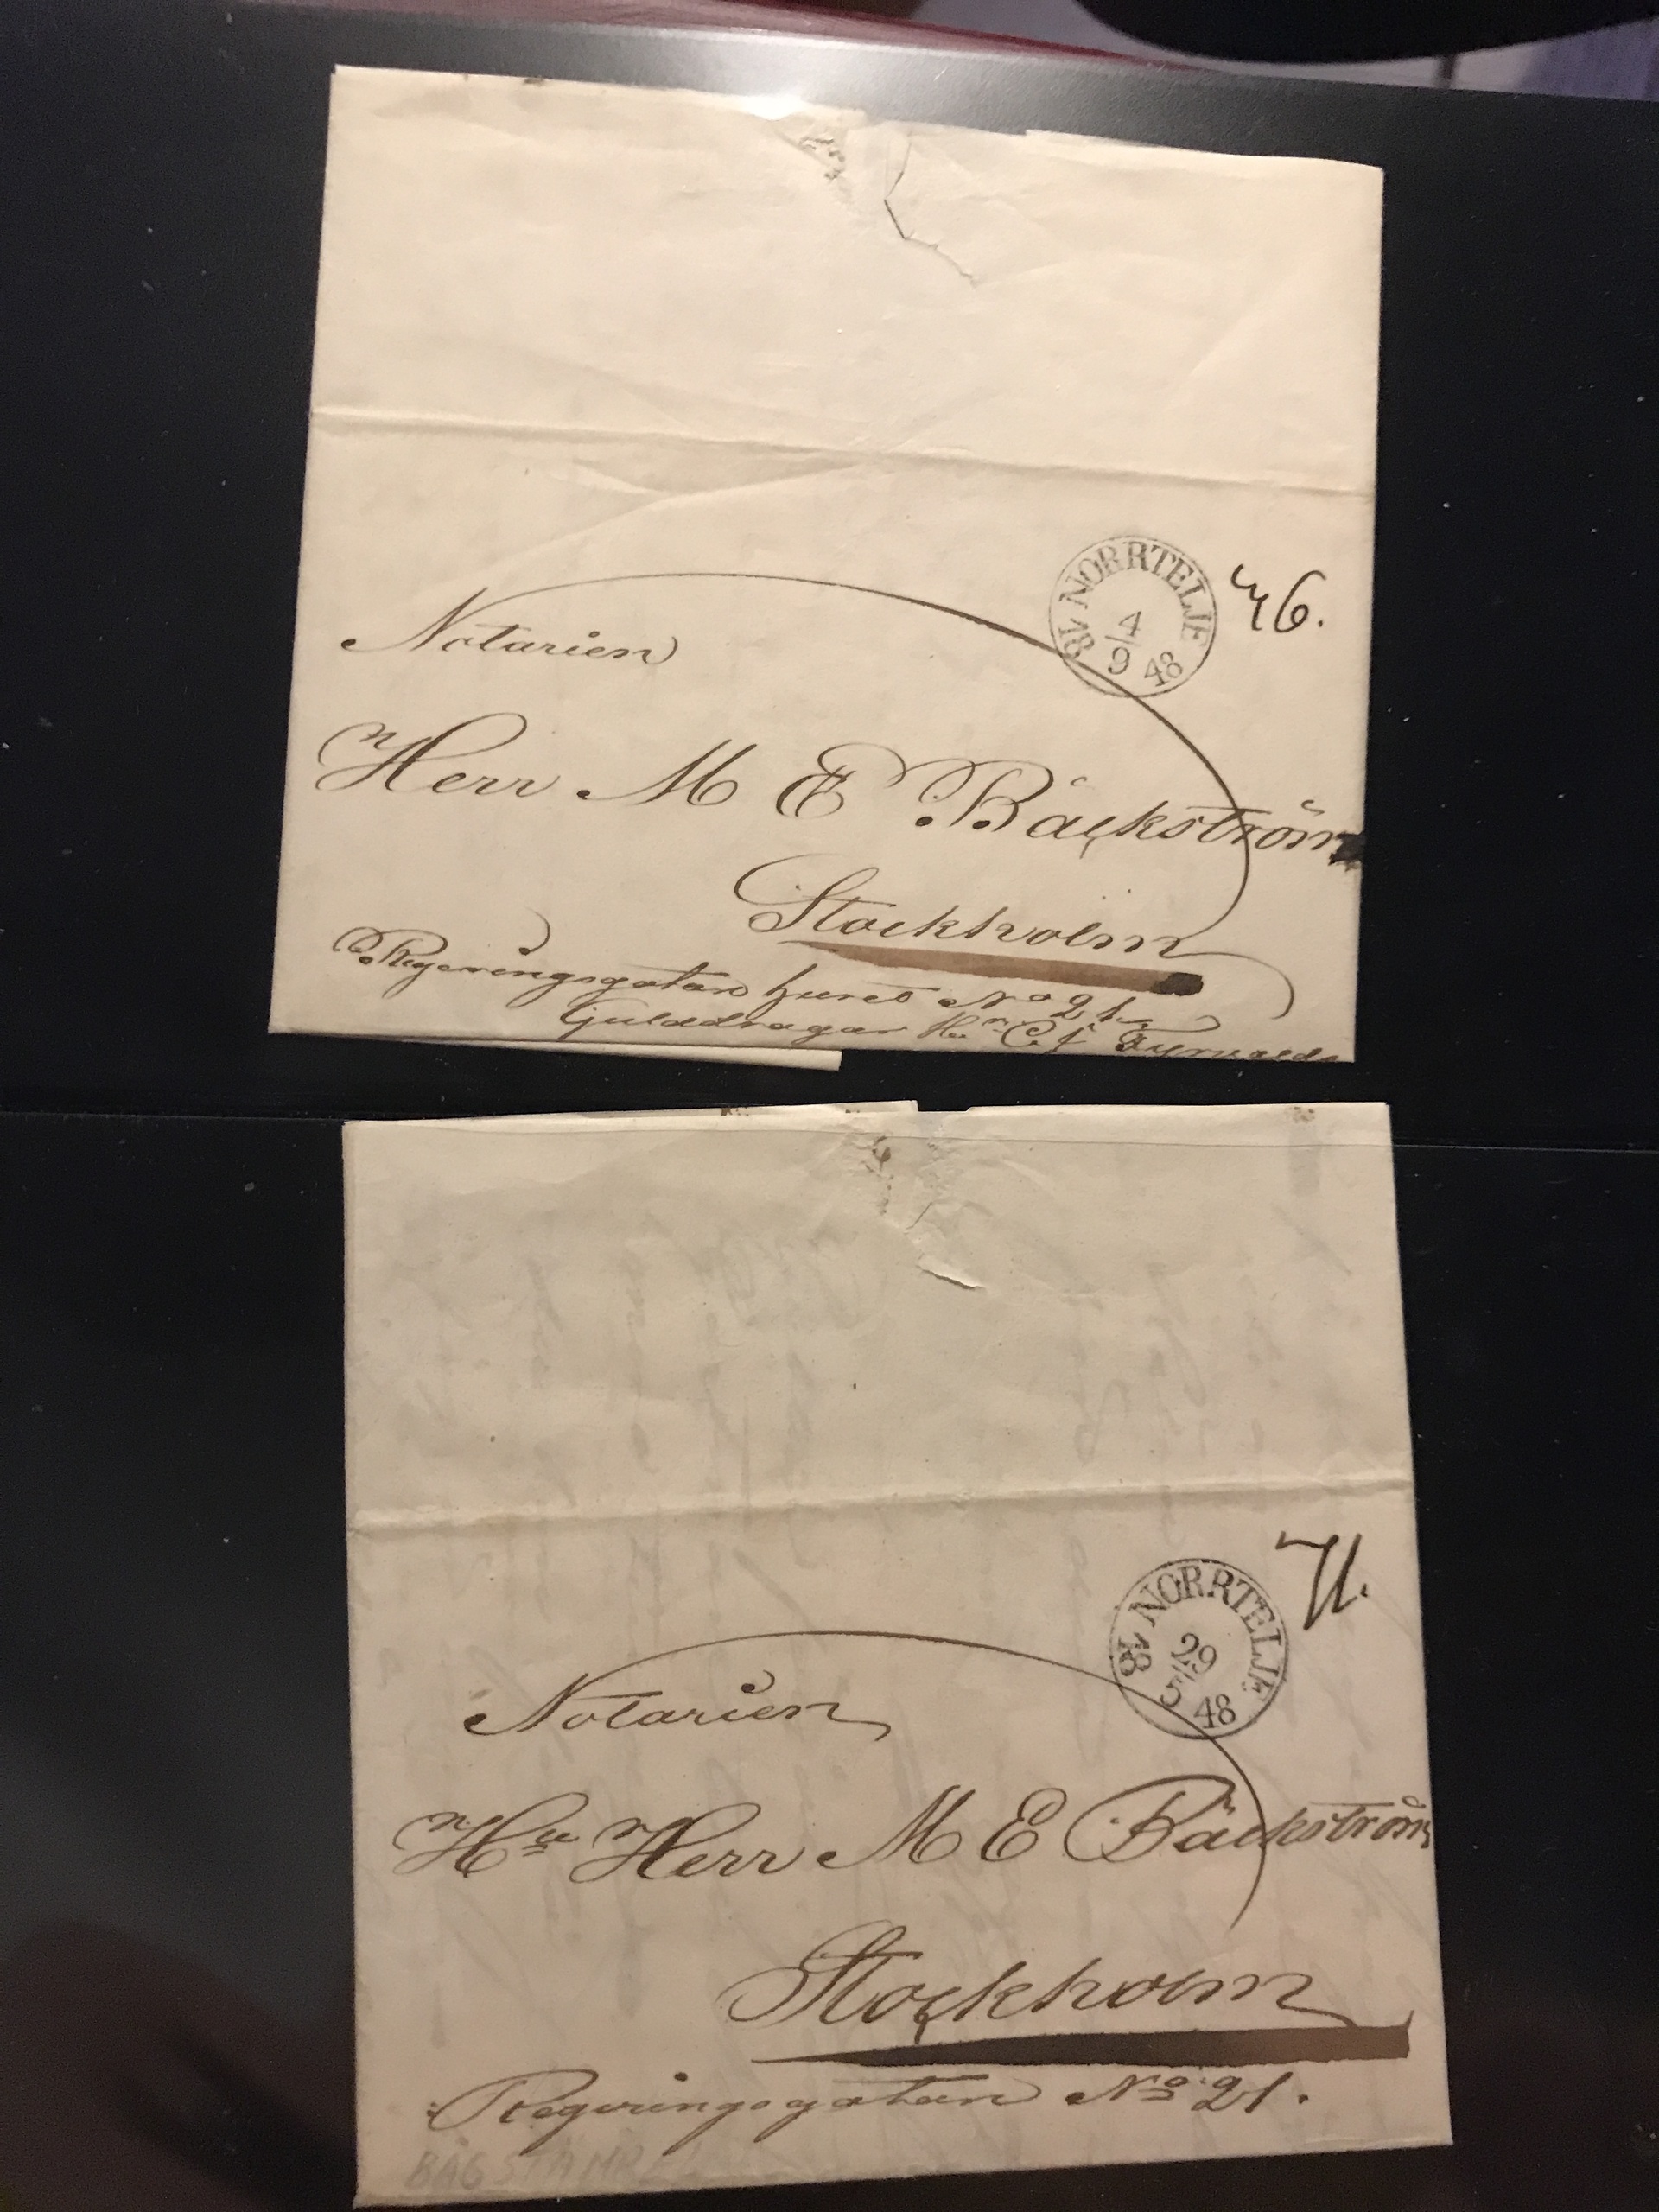 NORRTELJE
4
9
1848
46.
Notarien
Herr M E Bäckström
Stockholm
Regeringsgatan huset No 21
Gulddragar Hr C F
NORRTELJE
29
5
1848
71.
Notarien
Hr Herr M E Bäckström
Stockholm
Regeringsgatan No 21.
BÅGSTÄMPEL